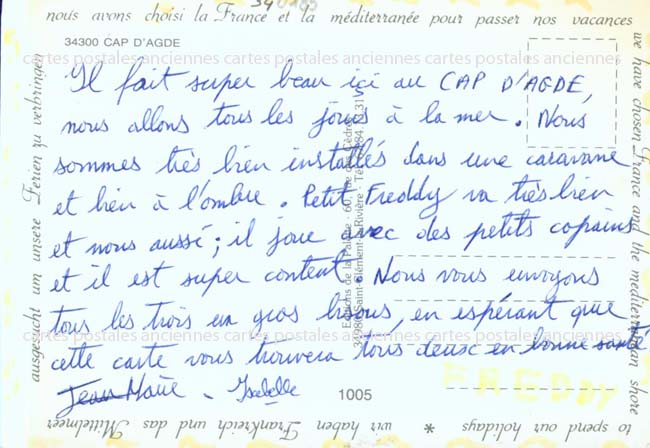 nous avons choisi la France et la méditerranée pour passer nos vacances
34300 CAP D'AGDE
cartes postales anciennes cartes postales anciennes cartes postales anciennes
Il fait super beau içi au CAP D'AGDE,
nous allons tous les jours à la mer. Nous
sommes très bien installés dans une caravane
et bien à l'ombre. Petit Freddy va très bien
et nous aussi; il joue avec des petits copains
et il est super content. Nous vous envoyons
tous les trois un gros bisous, en espérant que
cartes postales anciennes cartes postales anciennes cartes postales anciennes
cette carte vous trouvera tous deux en bonne santé
Jean Marie - Isabelle
1005
Editions de la Palme
34980 Saint-Clément-la-Rivière - Tél.
we have chosen France and the mediterranean shore
to spend our holidays * wir haben Frankreich und das Mittelmeer
ausgesucht um unsere Ferien zu verbringen